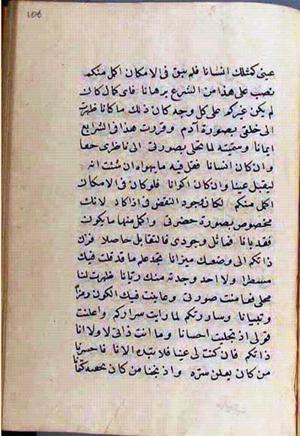 عيني كمثلك انسانا فلم يبق في الامكان اكمل منكم
نصب على هذا من الشرع برهانا فاي كمال كان
لم يكن غيركم على كل وجه كان ذلك ما كانا ظهرت
الى خلقي بصورة آدم وقررت هذا في الشرايع
ايمانا وسميته لما تجلى بصورتي الى ناظري حقا
وان كان انسانا فقل فيه ما تهواه ان شئت انه
ليقبل عينا وان كان اكوانا فلو كان في الامكان
اكمل منكم لكان وجود النقص في اذا كانا لانك
مخصوص بصورة حضرتي واكمل منها ما يكون
فقد بانا فقابل وجودي فالتقابل حاصلا فزن
ذاتكم الى وضعك ميزانا تجد علم ما قد قلت فيك
مسطرا ولا احد وجدته منك ريانا ظهرت لنا
مجلى فعاينت صورتي وعاينت فيك الكون رمزا
وتبيانا وساررتكم لما رايت سراركم واعلنت
قولي اذ تجليت احسانا وما انت ذاتي لا ولا انا
ذاتكم فان كنت لي عينا فلا تبد الانا فاخسر
من كان يعلن سره واربحنا من كان يخصه كتمانا